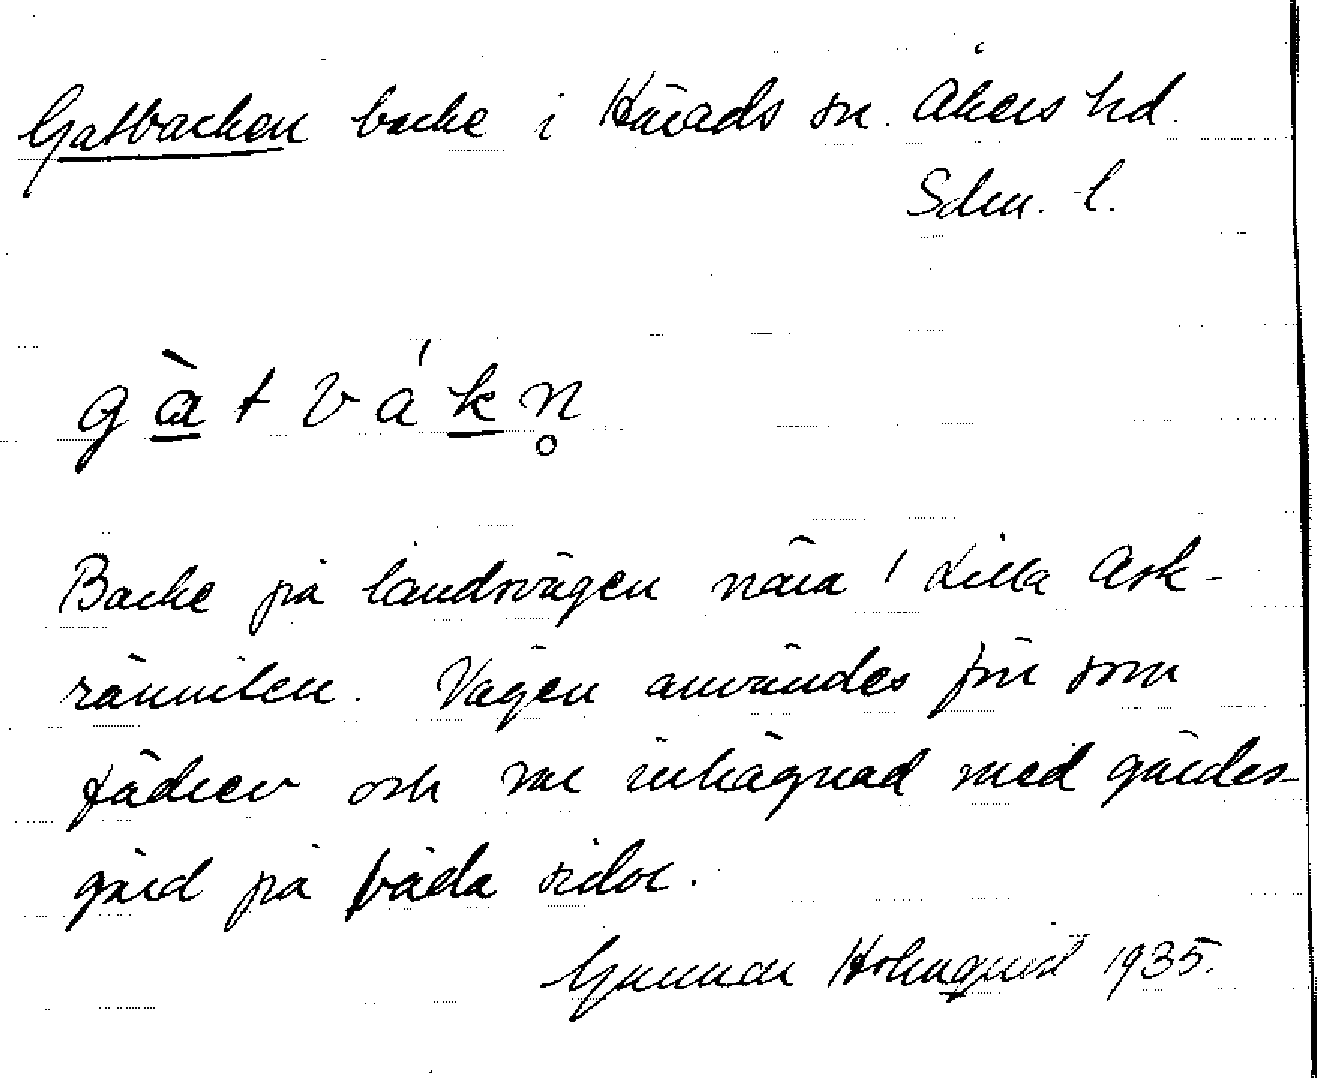 Gatbacken backe i Härads sn. Åkers hd.
Sdm. l.
gàtvákn̥
Backe på landsvägen nära Lilla Ask-
rännilen. Vägen användes förr som
fädrev och var inhägnad med gärdes-
gård på båda sidor.
Gunnar Holmqvist 1935.